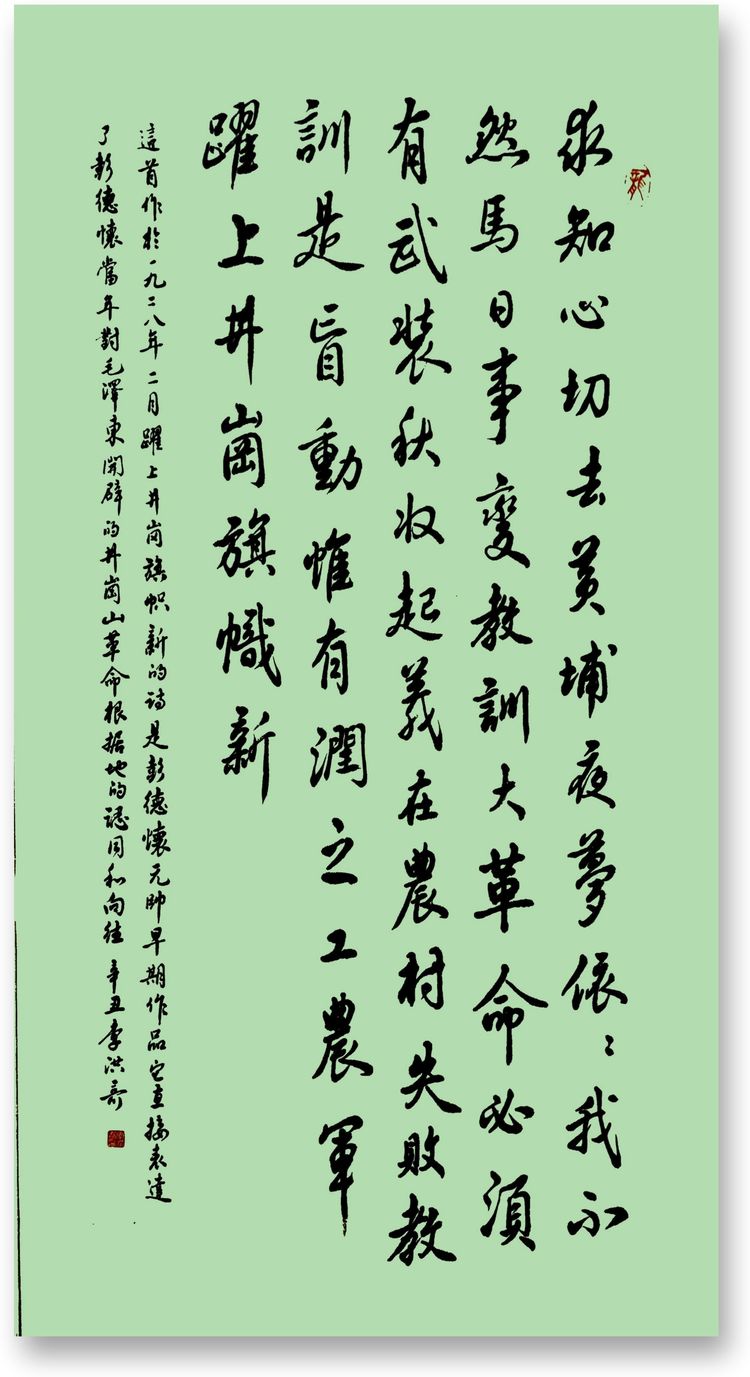 龍
求知心切去黃埔夜夢依〻我不
然馬日事變教訓大革命必須
有武裝秋收起義在農村失敗教
訓是盲動惟有潤之工農軍
躍上井崗旗幟新
這首作於一九二八年二月躍上井崗旗幟新的詩是彭德懷元帥早期作品它直接表達
了彭德懷當年對毛澤東開辟的井崗山革命根据地的認同和向往 辛丑李洪